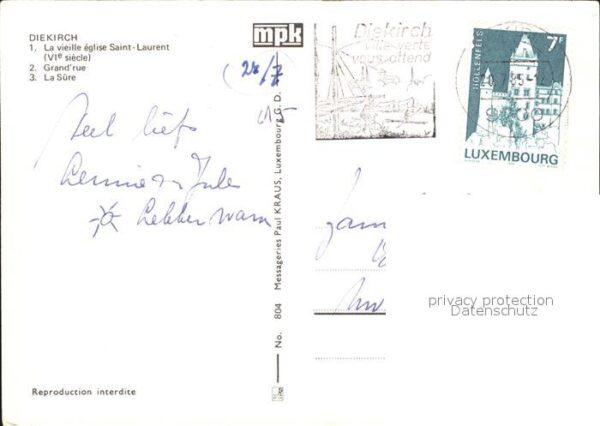 DIEKIRCH
1. La vieille église Saint-Laurent
(VIe siècle)
2. Grand'rue
3. La Sûre
mpk
28/7
Veel liefs
Lennie en Jules
Lekker warm
Reproduction interdite
No. 804 Messageries Paul KRAUS, Luxembourg G. D.
Diekirch
ville verte
vous attend
HOLLENFELS
7F
LUXEMBOURG
Fam
privacy protection
Datenschutz